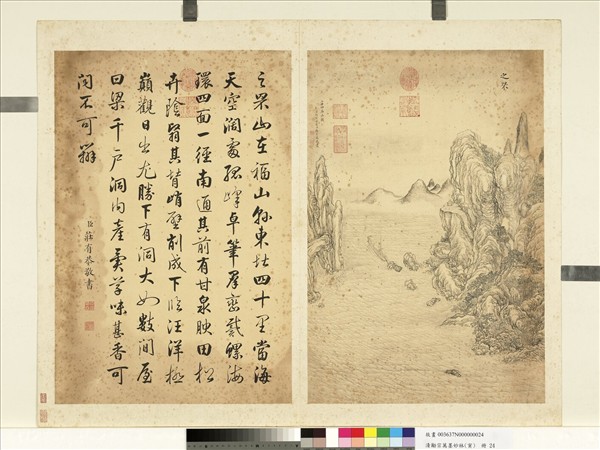 之罘
之罘山在福山縣東北四十里當海
天空濶處孤峰卓筆羣巒戴螺海
環四面一徑南通其前有甘泉映田松
卉陰翳其背峭壁削成下臨汪洋極
巔觀日出尤勝下有洞大如數間屋
曰梁千戶洞內產異草味甚香可
聞不可辨
臣莊有恭敬書
故畫 003637N000000024
冊 24